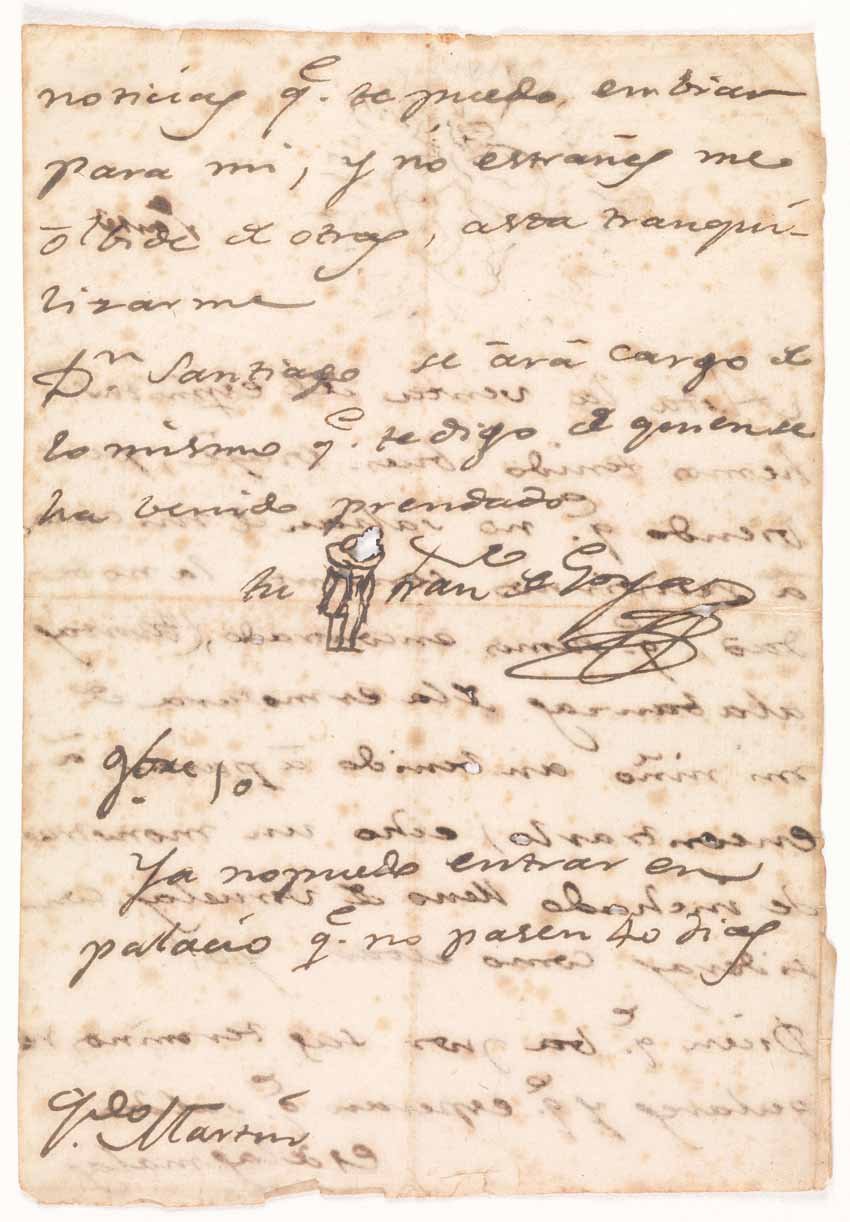 noticias q.e te puedo embiar
para mi, y no estrañes me
olbide de otras, asta tranqui-
lizarme
Dn Santiago se ārā cargo de
lo mismo q.e te digo de quien se
ha benido prendado
tu Fran.co de Goya
9bre 10
Ya no puedo entrar en
palacio q.e no pasen 40 dias
Q.do Martin